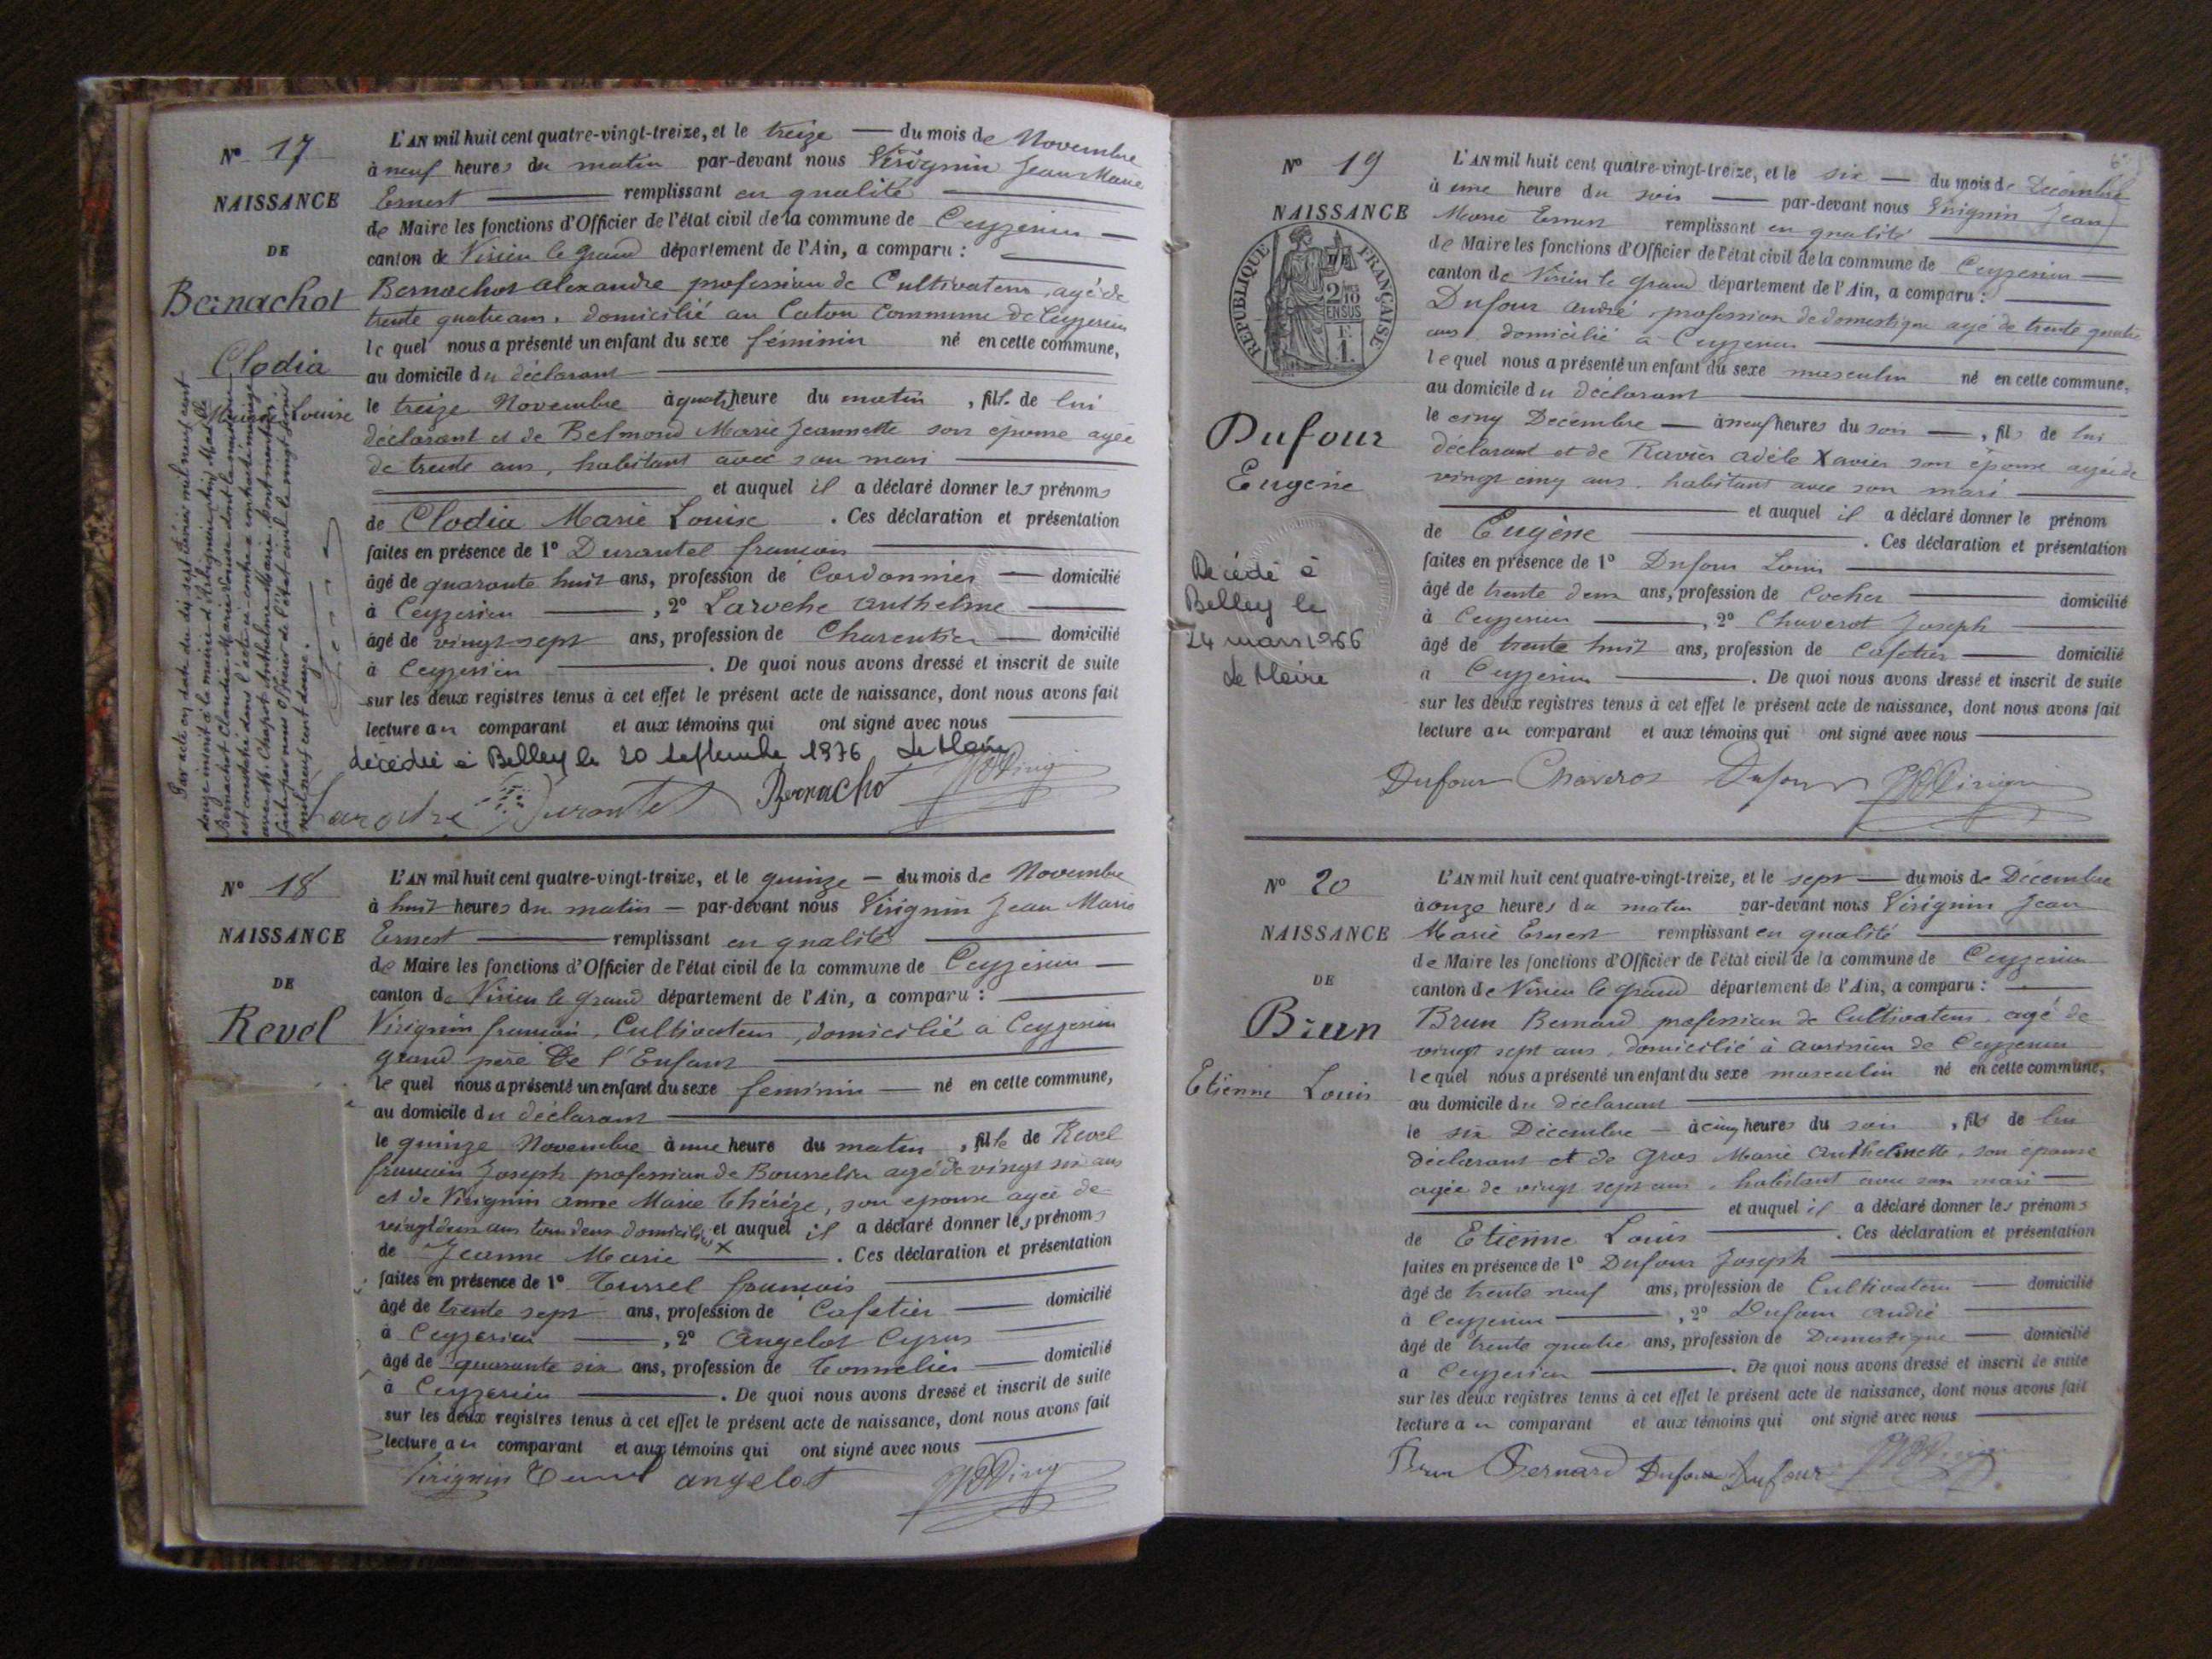 N° 17
NAISSANCE
DE
Bernachot
Clodia
Marie Louise
L'AN mil huit cent quatre-vingt-treize, et le treize — du mois de Novembre
à neuf heures du matin par-devant nous Virignin Jean Marie
Ernest — remplissant en qualité —
de Maire les fonctions d'Officier de l'état civil de la commune de Ceyzerieu —
canton de Virieu le grand département de l'Ain, a comparu : —
Bernachot alexandre profession de Cultivateur, agé de
trente quatre ans, domicilié au Caton Commune de Ceyzerieu
le quel nous a présenté un enfant du sexe féminin né en cette commune,
au domicile du déclarant —
le treize Novembre à quatre heure du matin, fille de lui
déclarant et de Belmond Marie Jeannette son épouse agée
de trente ans, habitant avec son mari —
— et auquel il a déclaré donner les prénoms
de Clodia Marie Louise . Ces déclaration et présentation
faites en présence de 1° Durantel francois —
âgé de quarante huit ans, profession de Cordonnier — domicilié
à Ceyzerieu —, 2° Laroche anthelme —
âgé de vingt sept ans, profession de Charentier — domicilié
à Ceyzerieu — . De quoi nous avons dressé et inscrit de suite
sur les deux registres tenus à cet effet le présent acte de naissance, dont nous avons fait
lecture au comparant et aux témoins qui ont signé avec nous —
décédée à Belley le 20 septembre 1976 Le Maire
Durantel Bernachot
N° 18
NAISSANCE
DE
Revel
L'AN mil huit cent quatre-vingt-treize, et le quinze — du mois de Novembre
à huit heures du matin — par-devant nous Virignin Jean Marie
Ernest — remplissant en qualité —
de Maire les fonctions d'Officier de l'état civil de la commune de Ceyzerieu —
canton de Virieu le grand département de l'Ain, a comparu : —
Virignin francois, Cultivateur, domicilié à Ceyzerieu
grand père de l'Enfant —
le quel nous a présenté un enfant du sexe féminin — né en cette commune,
au domicile du déclarant —
le quinze Novembre à une heure du matin, fille de Revel
francois Joseph profession de Bourrelier agé de vingt six ans
et de Virignin anne Marie thérèze, son epouse agée de
vingt deux ans tous deux domiciliés et auquel il a déclaré donner les prénoms
de Jeanne Marie × — . Ces déclaration et présentation
faites en présence de 1° Turrel francois —
âgé de trente sept ans, profession de Cafetier — domicilié
à Ceyzerieu —, 2° Angelot Cyrus —
âgé de quarante six ans, profession de Tonnelier — domicilié
à Ceyzerieu — . De quoi nous avons dressé et inscrit de suite
sur les deux registres tenus à cet effet le présent acte de naissance, dont nous avons fait
lecture au comparant et aux témoins qui ont signé avec nous —
Virignin Turrel angelot
N° 19
NAISSANCE
REPUBLIQUE FRANÇAISE
2/10
EN SUS
Dufour
Eugène
Décédé à
Belley le
24 mars 1966
Le Maire
L'AN mil huit cent quatre-vingt-treize, et le six — du mois de Décembre
à une heure du soir — par-devant nous Virignin Jean
Marie Ernest remplissant en qualité —
de Maire les fonctions d'Officier de l'état civil de la commune de Ceyzerieu —
canton de Virieu le grand département de l'Ain, a comparu : —
Dufour andré, profession de domestique agé de trente quatre
ans domicilié à Ceyzerieu —
le quel nous a présenté un enfant du sexe masculin né en cette commune,
au domicile du déclarant —
le cinq Décembre — à neuf heures du soir —, fils de lui
déclarant et de Ravier adèle Xavier son épouse agée de
vingt cinq ans, habitant avec son mari —
— et auquel il a déclaré donner le prénom
de Eugène — . Ces déclaration et présentation
faites en présence de 1° Dufour Louis —
âgé de trente deux ans, profession de Cocher — domicilié
à Ceyzerieu —, 2° Chaverot Joseph —
âgé de trente huit ans, profession de Cafetier — domicilié
à Ceyzerieu — . De quoi nous avons dressé et inscrit de suite
sur les deux registres tenus à cet effet le présent acte de naissance, dont nous avons fait
lecture au comparant et aux témoins qui ont signé avec nous —
Dufour Chaverot Dufour
N° 20
NAISSANCE
DE
Brun
Etienne Louis
L'AN mil huit cent quatre-vingt-treize, et le sept — du mois de Décembre
à onze heures du matin par-devant nous Virignin Jean
Marie Ernest remplissant en qualité —
de Maire les fonctions d'Officier de l'état civil de la commune de Ceyzerieu
canton de Virieu le grand département de l'Ain, a comparu : —
Brun Bernard profession de Cultivateur, agé de
vingt sept ans, domicilié à avrissieu de Ceyzerieu
le quel nous a présenté un enfant du sexe masculin né en cette commune,
au domicile du déclarant —
le six Décembre — à cinq heures du soir, fils de lui
déclarant et de Gros Marie anthelmette, son épouse
agée de vingt sept ans, habitant avec son mari —
— et auquel il a déclaré donner les prénoms
de Etienne Louis — . Ces déclaration et présentation
faites en présence de 1° Dufour Joseph —
âgé de trente neuf ans, profession de Cultivateur — domicilié
à Ceyzerieu —, 2° Dufour andré —
âgé de trente quatre ans, profession de Domestique — domicilié
à Ceyzerieu — . De quoi nous avons dressé et inscrit de suite
sur les deux registres tenus à cet effet le présent acte de naissance, dont nous avons fait
lecture au comparant et aux témoins qui ont signé avec nous —
Brun Bernard Dufour Dufour